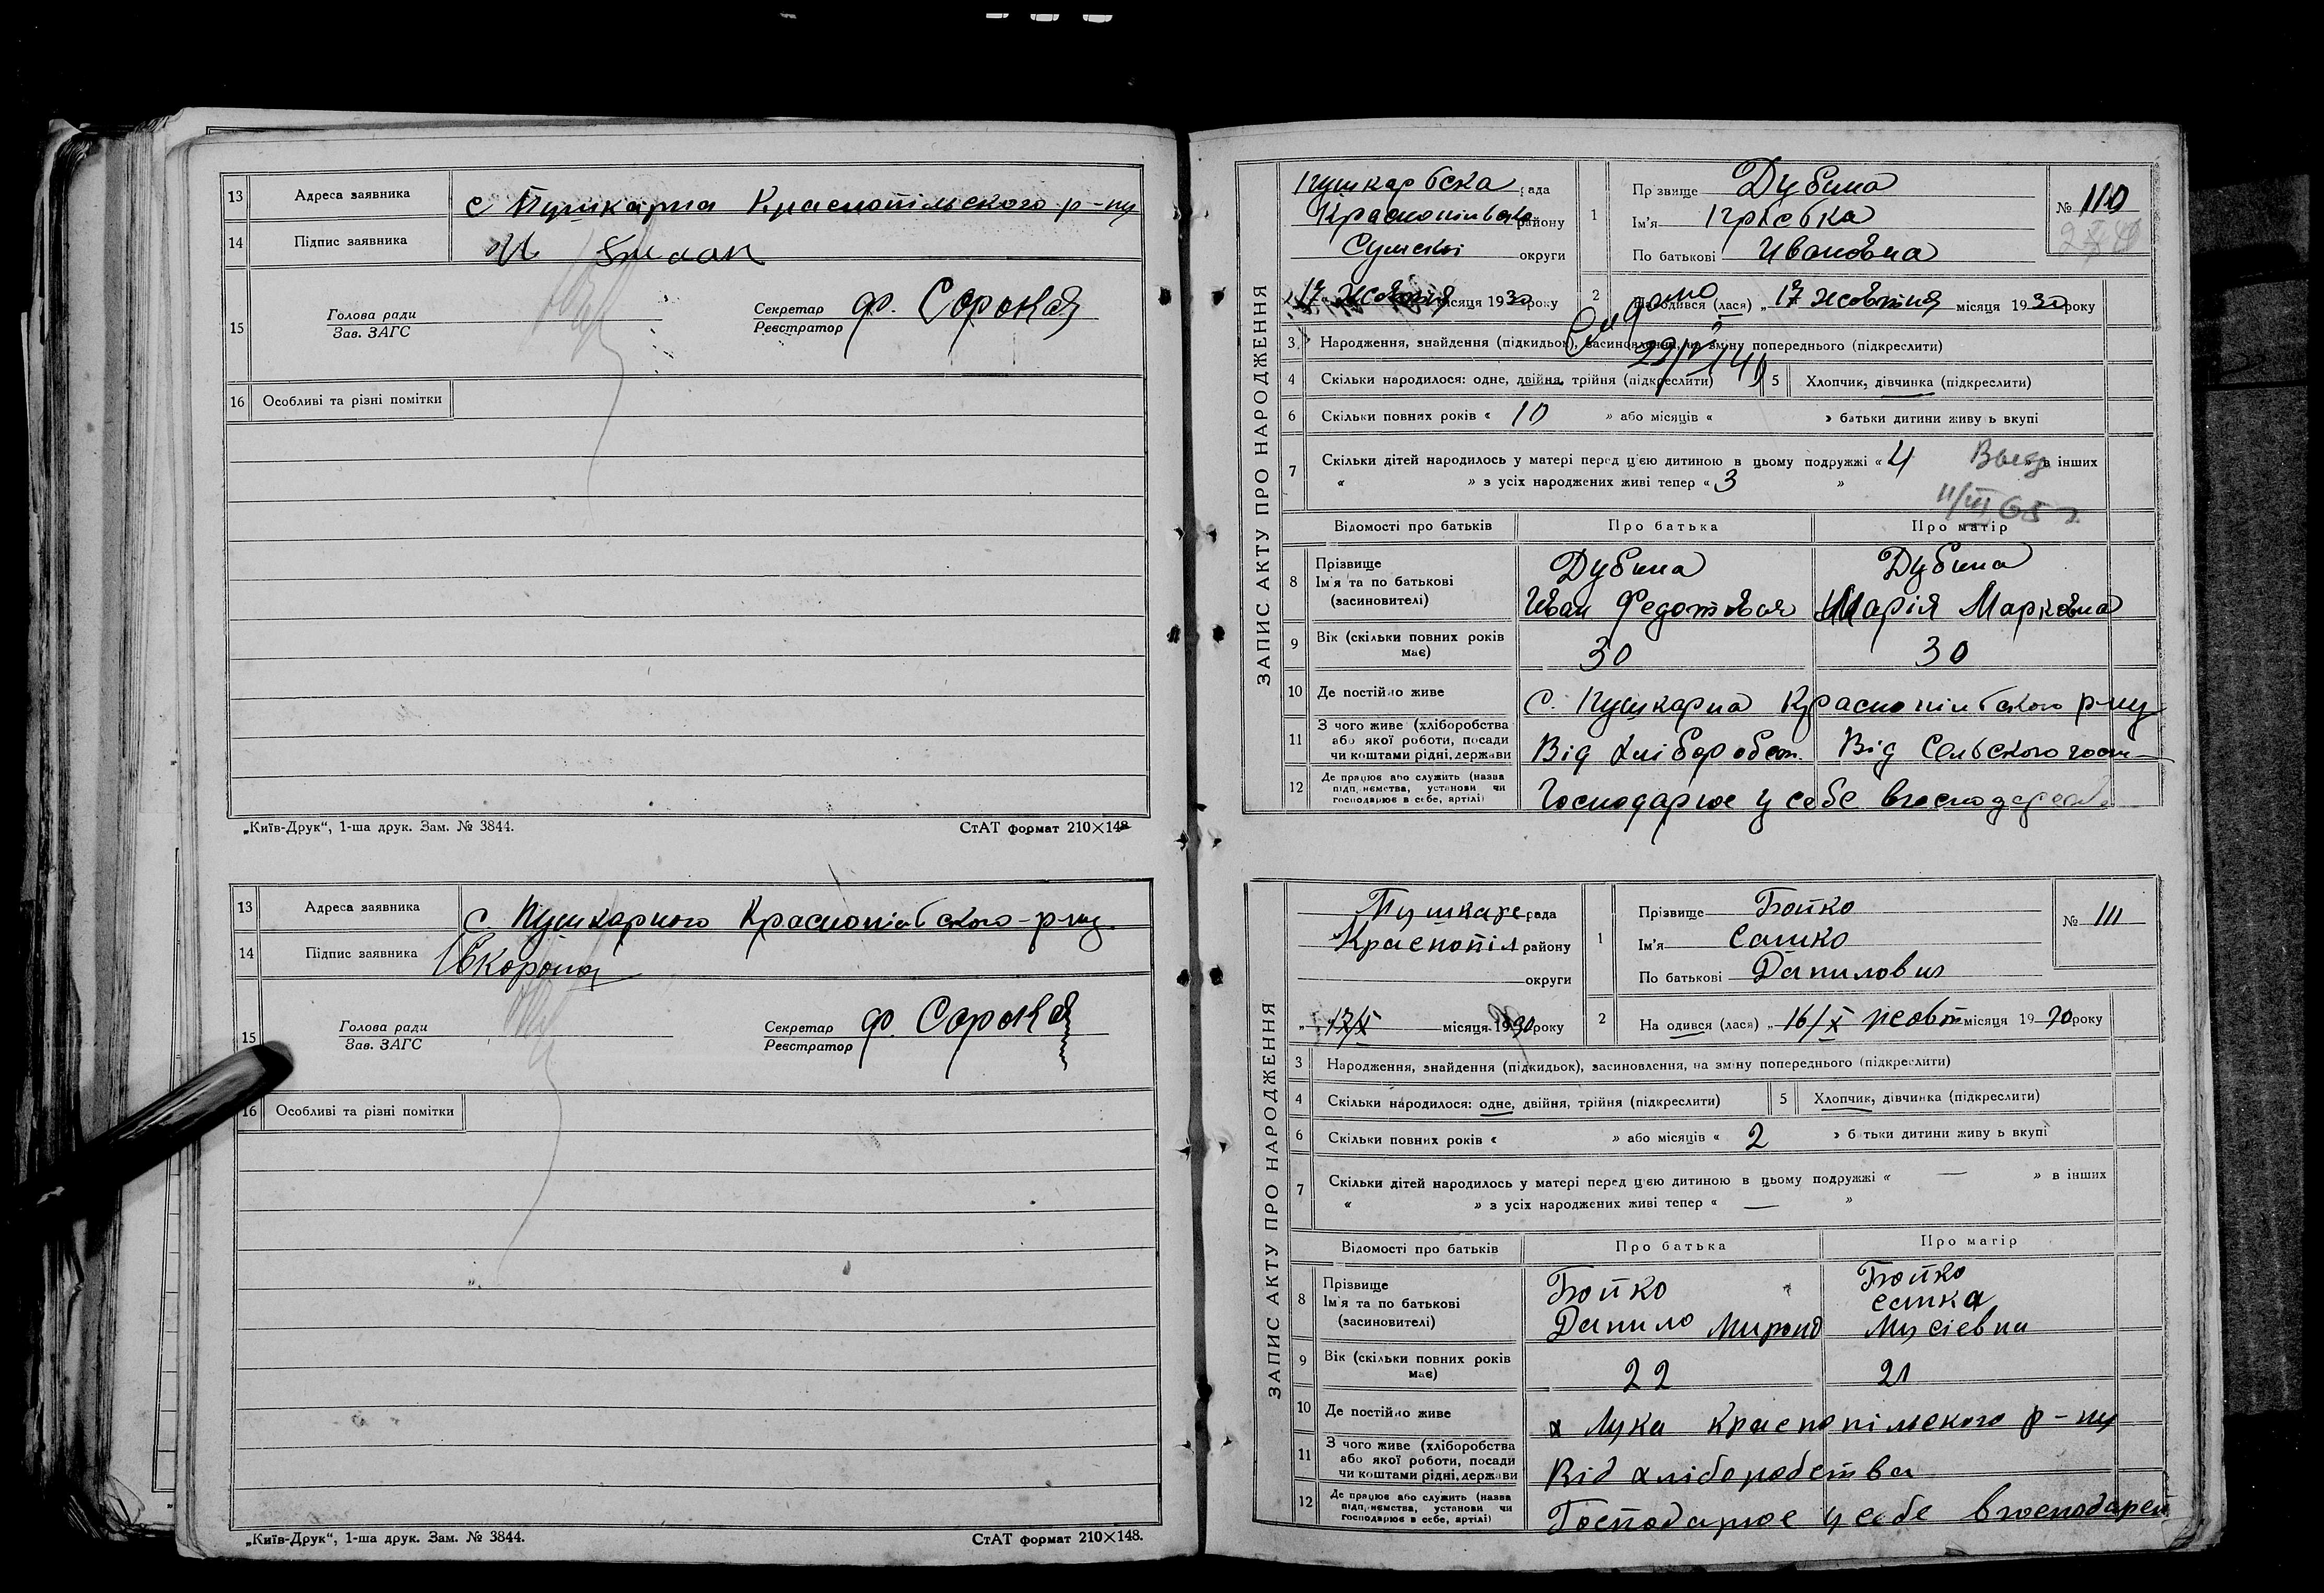 13 Адреса заявника с Пушкарна Краснопільського р-ну
14 Підпис заявника
15 Голова ради
Зав. ЗАГС
Секретар
Реєстратор Ф. Сорока
16 Особливі та різні помітки
„Київ-Друк“, 1-ша друк. Зам. № 3844. СтАТ формат 210×148
13 Адреса заявника с. Пушкарного Краснопільського р-ну.
14 Підпис заявника
15 Голова ради
Зав. ЗАГС
Секретар
Реєстратор Ф. Сорока
16 Особливі та різні помітки
„Київ-Друк“, 1-ша друк. Зам. № 3844. СтАТ формат 210×148.
ЗАПИС АКТУ ПРО НАРОДЖЕННЯ
Пушкарьска рада
Краснопільско району
Сумськ. округи
17 Жовтня місяця 1930 року
1 Прізвище Дубина
Ім'я
По батькові Ивановна
№ 110
2 Народився (лася) „ 17 жовтня місяця 1930 року
3 Народження, знайдення (підкидьок), засиновлення, на зміну попереднього (підкреслити)
4 Скільки народилося: одне, двійня, трійня (підкреслити) 5 Хлопчик, дівчинка (підкреслити)
6 Скільки повних років « 10 » або місяців « » батьки дитини живуть вкупі
7 Скільки дітей народилось у матері перед цією дитиною в цьому подружжі « 4 » в інших
« » з усіх народжених живі тепер « 3 »
11/III 65 г
Відомості про батьків Про батька Про матір
8 Прізвище
Ім'я та по батькові
(засиновителі)
Дубина
Иван Федотович
Дубина
Марія Марковна
9 Вік (скільки повних років має) 30 30
10 Де постійно живе С. Пушкарна Краснопільского р-ну
11 З чого живе (хліборобства
або якої роботи, посади
чи коштами рідні, держави
Від хлібороб́ст. Від Сельского госп
12 Де працює або служить (назва
підприємства, установи чи
господарює в себе, артілі)
Господарює у себе
ЗАПИС АКТУ ПРО НАРОДЖЕННЯ
Пушкаре рада
Краснопіл району
округи
„ 17/X місяця 1930 року
1 Прізвище Бойко
Ім'я Сашко
По батькові Данилович
№ 111
2 Народився (лася) „ 16/X жовт місяця 1930 року
3 Народження, знайдення (підкидьок), засиновлення, на зміну попереднього (підкреслити)
4 Скільки народилося: одне, двійня, трійня (підкреслити) 5 Хлопчик, дівчинка (підкреслити)
6 Скільки повних років « » або місяців « 2 » батьки дитини живуть вкупі
7 Скільки дітей народилось у матері перед цією дитиною в цьому подружжі « — » в інших
« » з усіх народжених живі тепер « — »
Відомості про батьків Про батька Про матір
8 Прізвище
Ім'я та по батькові
(засиновителі)
Бойко
Данило Мирон
Бойко
Мусієвна
9 Вік (скільки повних років має) 22 21
10 Де постійно живе х Лука Краснопільского р-ну
11 З чого живе (хліборобства
або якої роботи, посади
чи коштами рідні, держави
Від хліборобства
12 Де працює або служить (назва
підприємства, установи чи
господарює в себе, артілі)
Господарює у себе в господарст